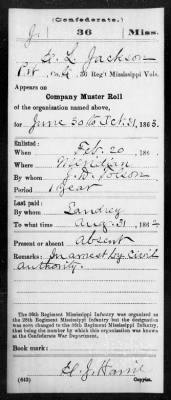 (Confederate.)
J 36 Miss.
A. L. Jackson
Pvt, Co. 36 Reg't Mississippi Vols.
Appears on
Company Muster Roll
of the organization named above,
for June 30 to Oct. 31, 1863.
Enlisted:
When Feb. 20, 186
Where Meridian
By whom
Period 1 year
Last paid:
By whom Landrey
To what time Aug. 31, 1862
Present or absent Absent
Remarks: In arrest by Civil
authority.
The 36th Regiment Mississippi Infantry was organized as
the 28th Regiment Mississippi Infantry but the designation
was soon changed to the 36th Regiment Mississippi Infantry,
that being the number by which this organization was known
at the Confederate War Department.
Book mark:
(642) Copyist.